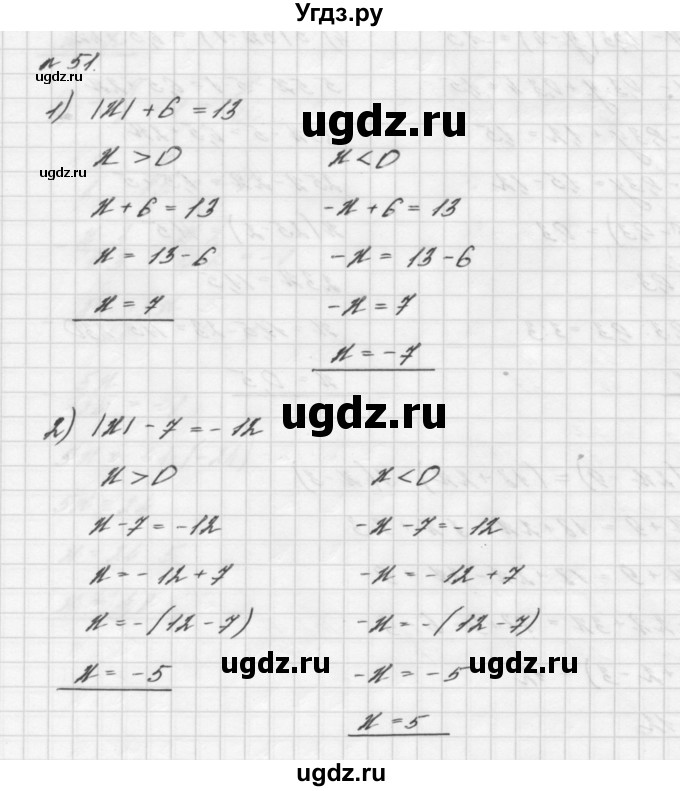 Угдз.ру
n 51.
ugdz.ru
1) |x| + 6 = 13
ugdz.ru
x > 0 x < 0
ugdz.ru
x + 6 = 13 -x + 6 = 13
x = 13 - 6 -x = 13 - 6
x = 7 -x = 7
x = -7
2) |x| - 7 = -12
ugdz.ru
x > 0 x < 0
x - 7 = -12 -x - 7 = -12
x = -12 + 7 -x = -12 + 7
x = -(12 - 7) -x = -(12 - 7)
x = -5 ugdz.ru -x = -5 ugdz.ru
x = 5
ugdz.ru
ugdz.ru